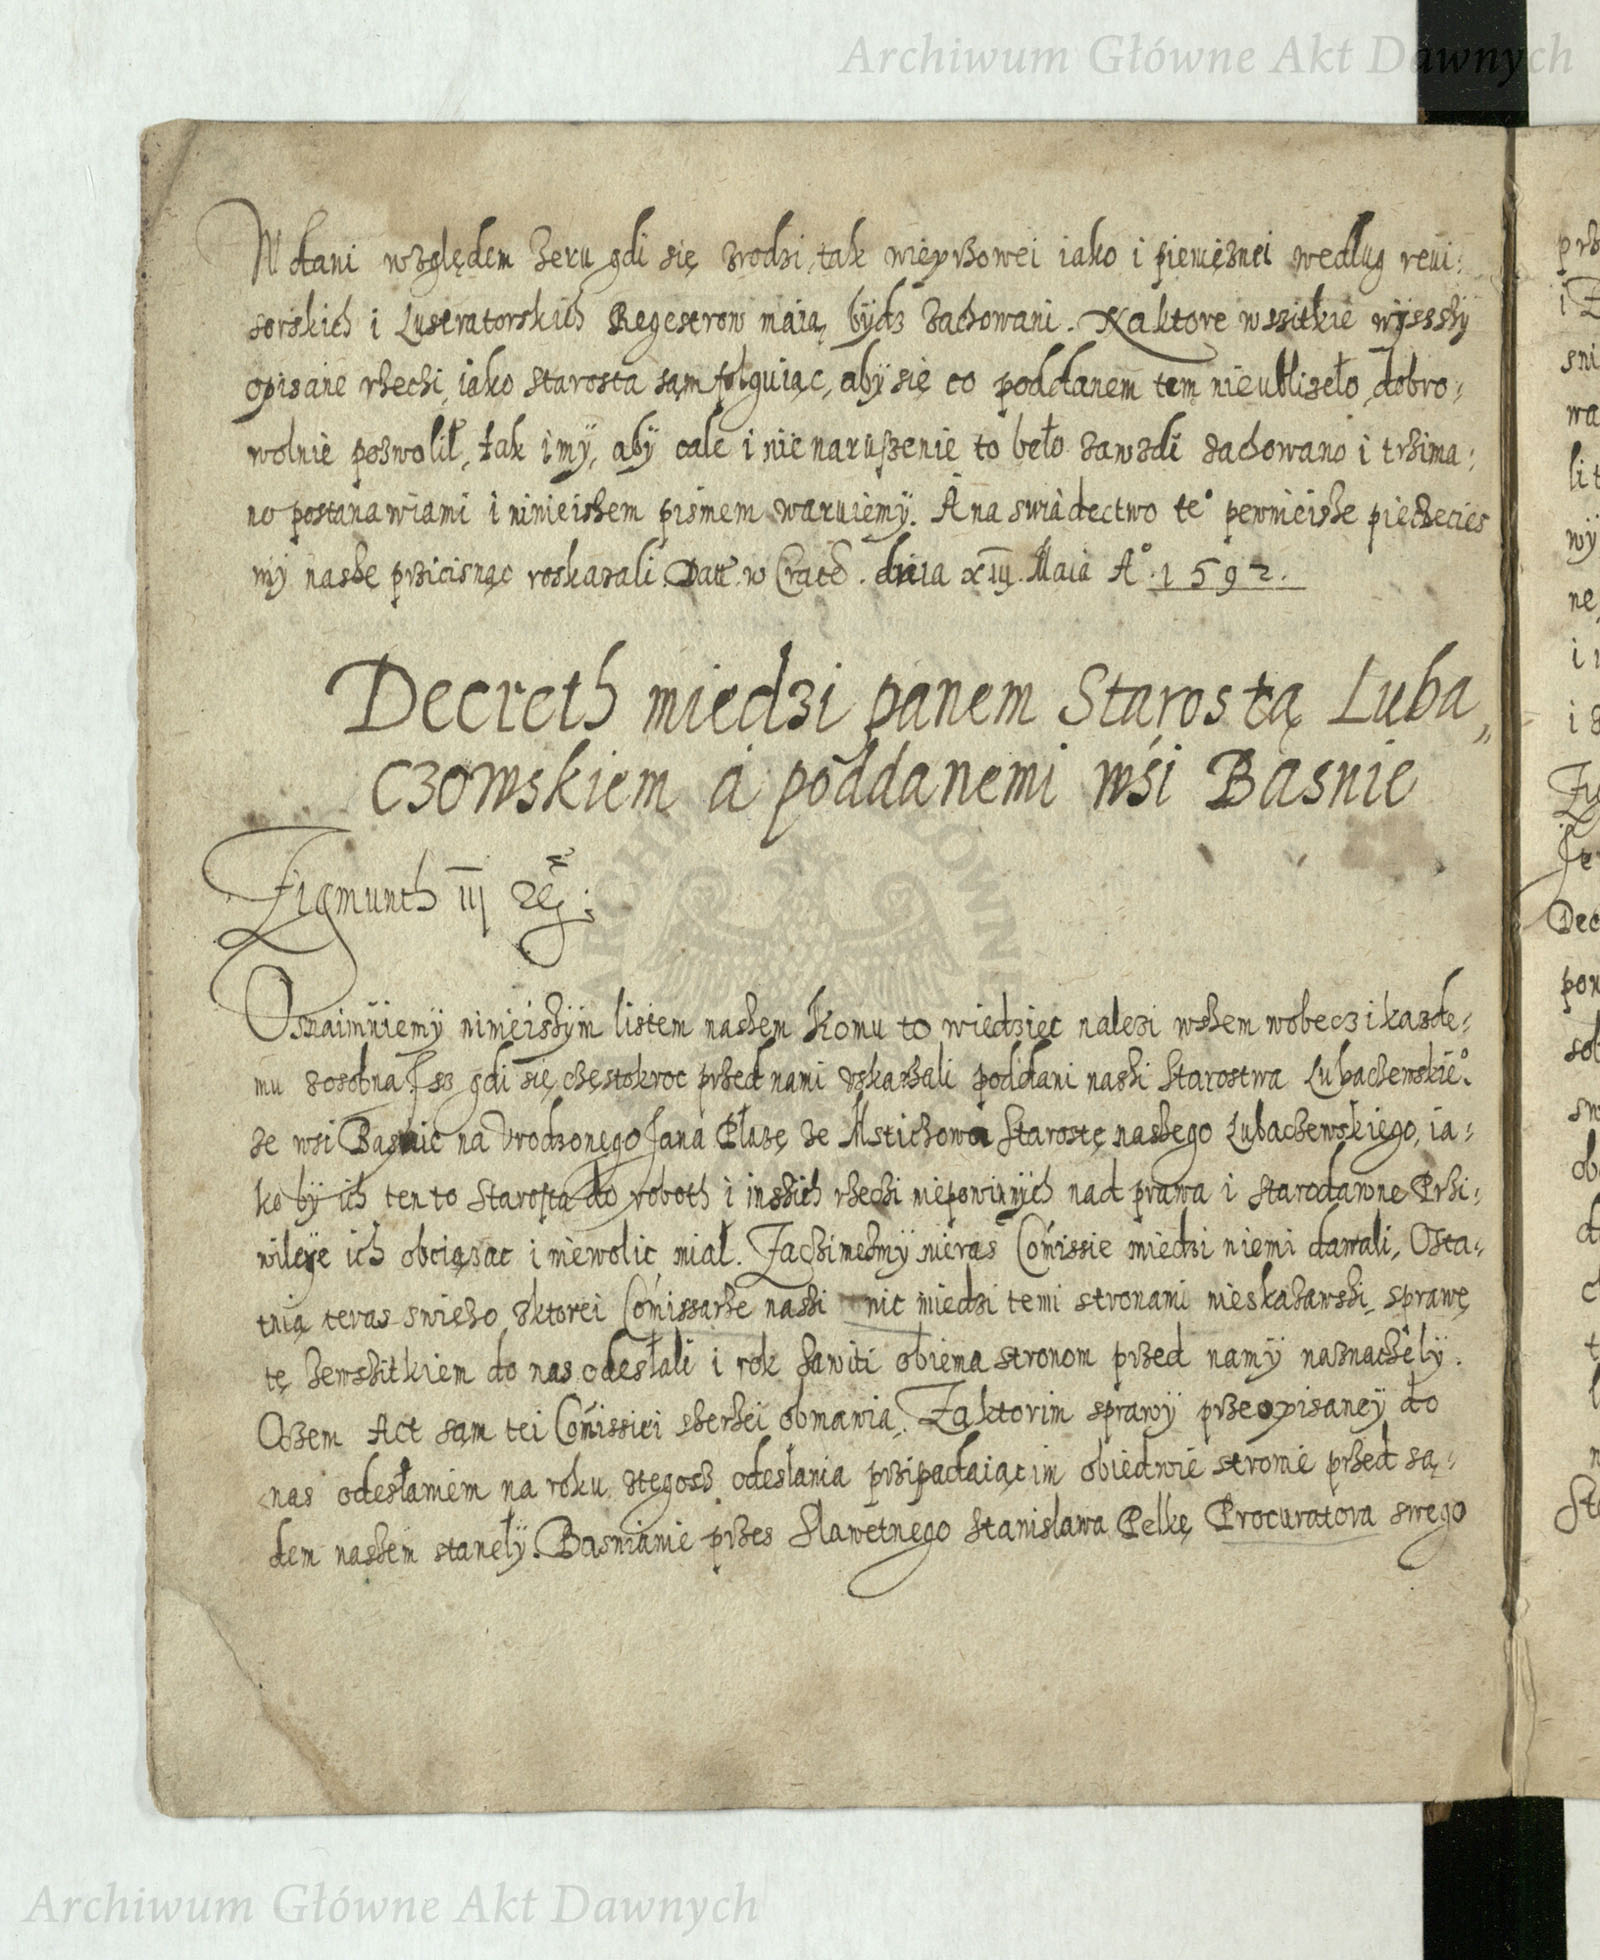 Archiwum Główne Akt Dawnych
W dani względem zeru gdi się zrodzi, tak wieprzowei iako i pieniężnei według reui-
sorskich i Lustratorskich Regestrow maią bydz zachowani. Na ktore wszitkie wyssshy
opisane rzechi, iako starosta sąm folguiąc, aby się co poddanem tem nieubliżeło, dobro-
wolnie pozwolił, tak i my, aby cale i nienaruszenie to beło zawzdi zachowano i trzima-
no postanawiami i ninieishem pismem waruiemy. A na swiadectwo te° pewnieishe piechecies
my nashe prziciſnąc roskazali. Datt. w Craco. dnia XIII. Maia A° . 1592.
Decreth miedzi panem Starostą Luba„
czowskiem a poddanemi wśi Basnie
Zigmunth III
Oznaimuiemy ninieishym listem nashem Komu to wiedziec nalezi wshem wobecz i kazde-
mu zosobna Jsz gdi się chęstokroc przed nami uskarzali poddani nashi Starostwa Lubachewskie°
ze wsi Basnie na Vrodzonego Jana Płazę ze Mstichowa Starostę nashego Lubachewskiego, ia-
ko by ich ten to Starosta do roboth i inshich rhechi niepowinnych nad prawa i starodawne Prhi-
wileye ich obciązac i niewolic miał. Zachimesmy nieras Comissie miedzi niemi dawali, Osta-
tnią teras swiezo zktorei Comissarze nashi nic miedzi temi stronami nieskazawshi, sprawę
tę zewshitkiem do nas odesłali i rok zawiti obiema stronom przed namy naznacheły.
Ozem Act sam tei Comissiei sherhei obmawia. Zaktorim sprawy przeopisaney do
nas odesłaniem na roku ztegosz odesłania przipadaiącim obiedwie stronie przed są-
dem nashem staneły. Basnianie przes Sławetnego Stanisława Pelkę Procuratora swego
Archiwum Główne Akt Dawnych